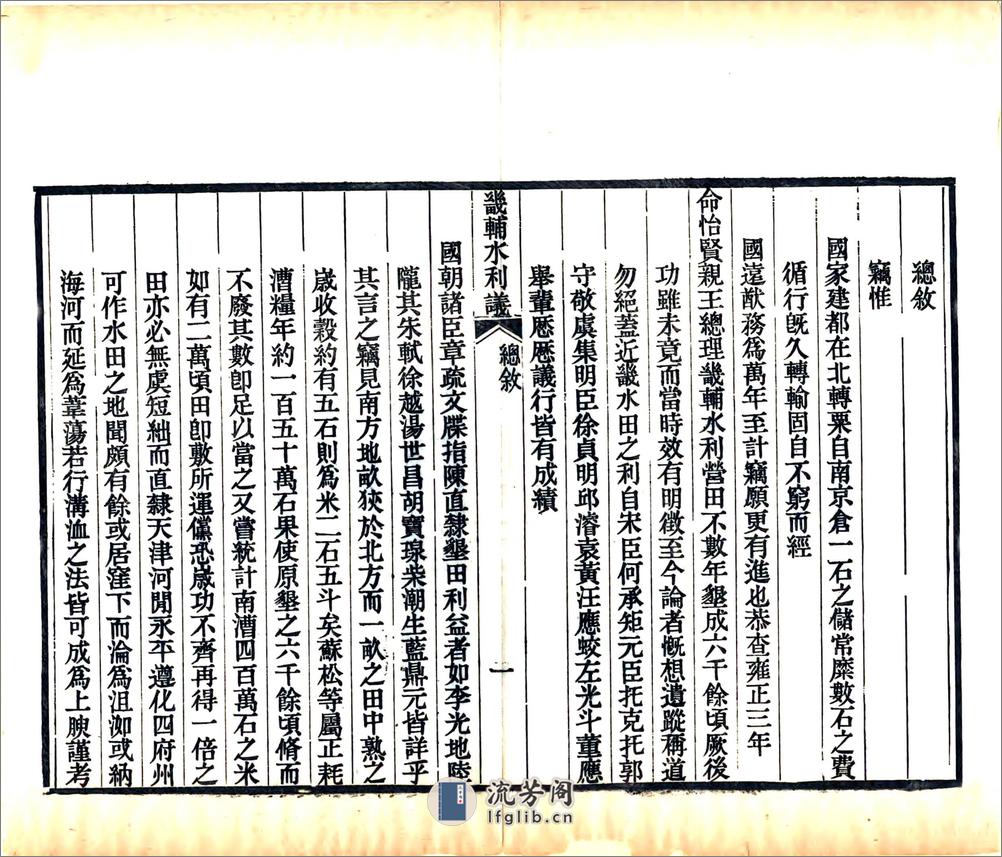 總敘
竊惟
國家建都在北轉粟自南京倉一石之儲常糜數石之費
循行旣久轉輸固自不窮而經
國遠猷務爲萬年至計竊願更有進也恭查雍正三年
命怡賢親王總理畿輔水利營田不數年墾成六千餘頃厥後
功雖未竟而當時效有明徵至今論者慨想遺蹤稱道
勿絕蓋近畿水田之利自宋臣何承矩元臣托克托郭
守敬虞集明臣徐貞明邱濬袁黃汪應蛟左光斗董應
舉輩歷歷議行皆有成績
畿輔水利議
總敘
一
國朝諸臣章疏文牒指陳直隸墾田利益者如李光地陸
隴其朱軾徐越湯世昌胡寶瑔柴潮生藍鼎元皆詳乎
其言之竊見南方地畝狹於北方而一畝之田中熟之
歲收穀約有五石則爲米二石五斗矣蘇松等屬正耗
漕糧年約一百五十萬石果使原墾之六千餘頃脩而
不廢其數卽足以當之又嘗統計南漕四百萬石之米
如有二萬頃田卽敷所運儻恐歲功不齊再得一倍之
田亦必無虞短絀而直隸天津河閒永平遵化四府州
可作水田之地聞頗有餘或居窪下而淪爲沮洳或納
海河而延爲葦蕩若行溝洫之法皆可成爲上腴謹考
流芳阁
lfglib.cn